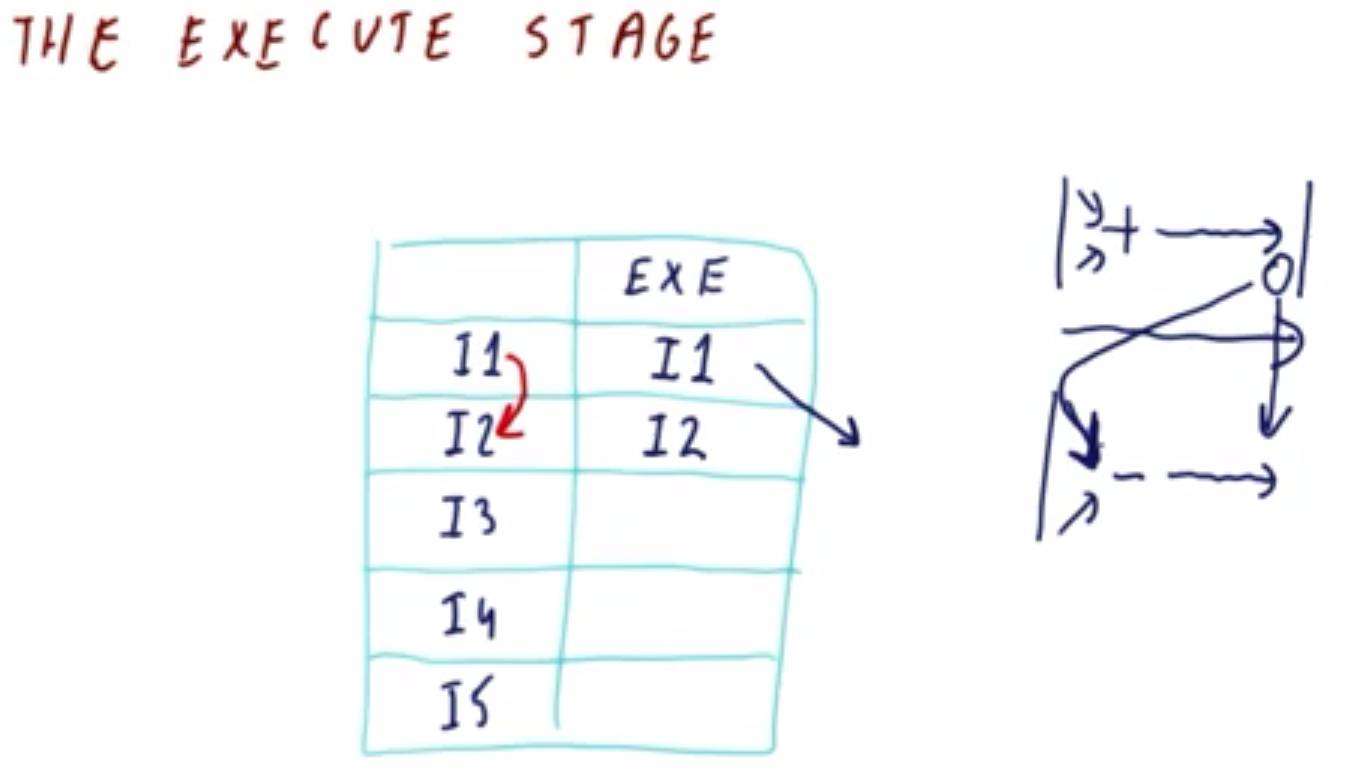 THE EXECUTE STAGE
EXE
I1 I1
I2 I2
I3
I4
I5
+
O
-